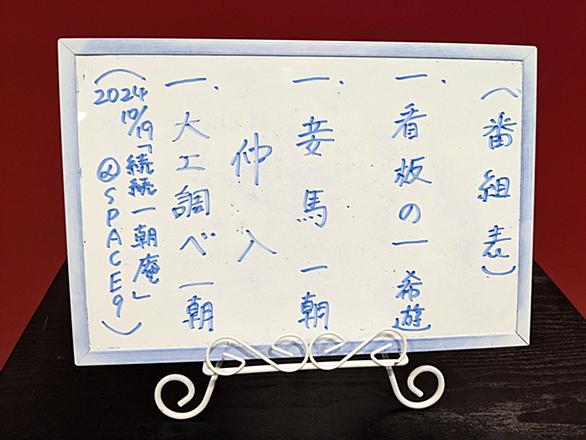 (番組表)
一、看板の一 希遊
一、妾馬 一朝
仲入
一、大工調べ 一朝
(2024 10/19「続続一朝庵」
@SPACE9)